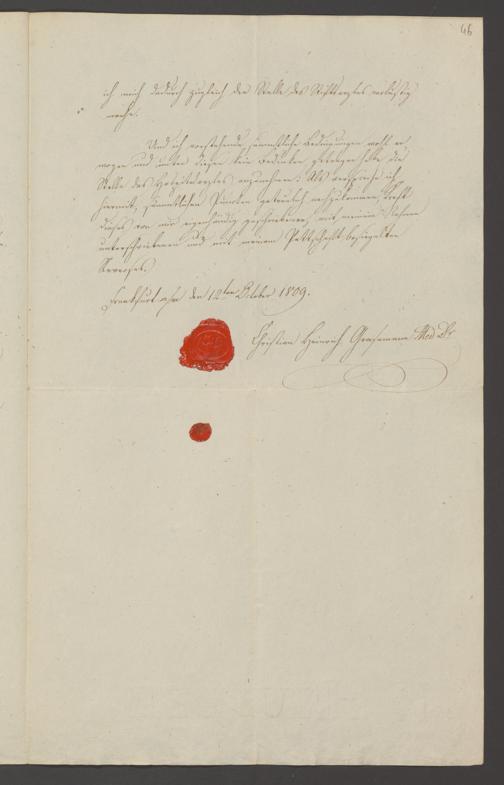 46
ich mich dadurch zugleich der Stelle des Stiftsarztes verlustig
mache.
Und ich vorstehende sämmtliche Bedingungen wohl er¬
wogen und unter diesen kein Bedenken getragen habe die
Stelle des Hospitalarztes anzunehmen: Als verspreche ich
hiermit, sämmtlichen Punkten getreulich nachzukommen, Kraft
dieses von mir eigenhändig geschriebenen, mit meinem Nahmen
unterschriebenen und mit meinem Pettschaft besiegelten
Reverses.
Frankfurt a/m den 12ten October 1809.
Christian Heinrich Grasemann Med. Dr